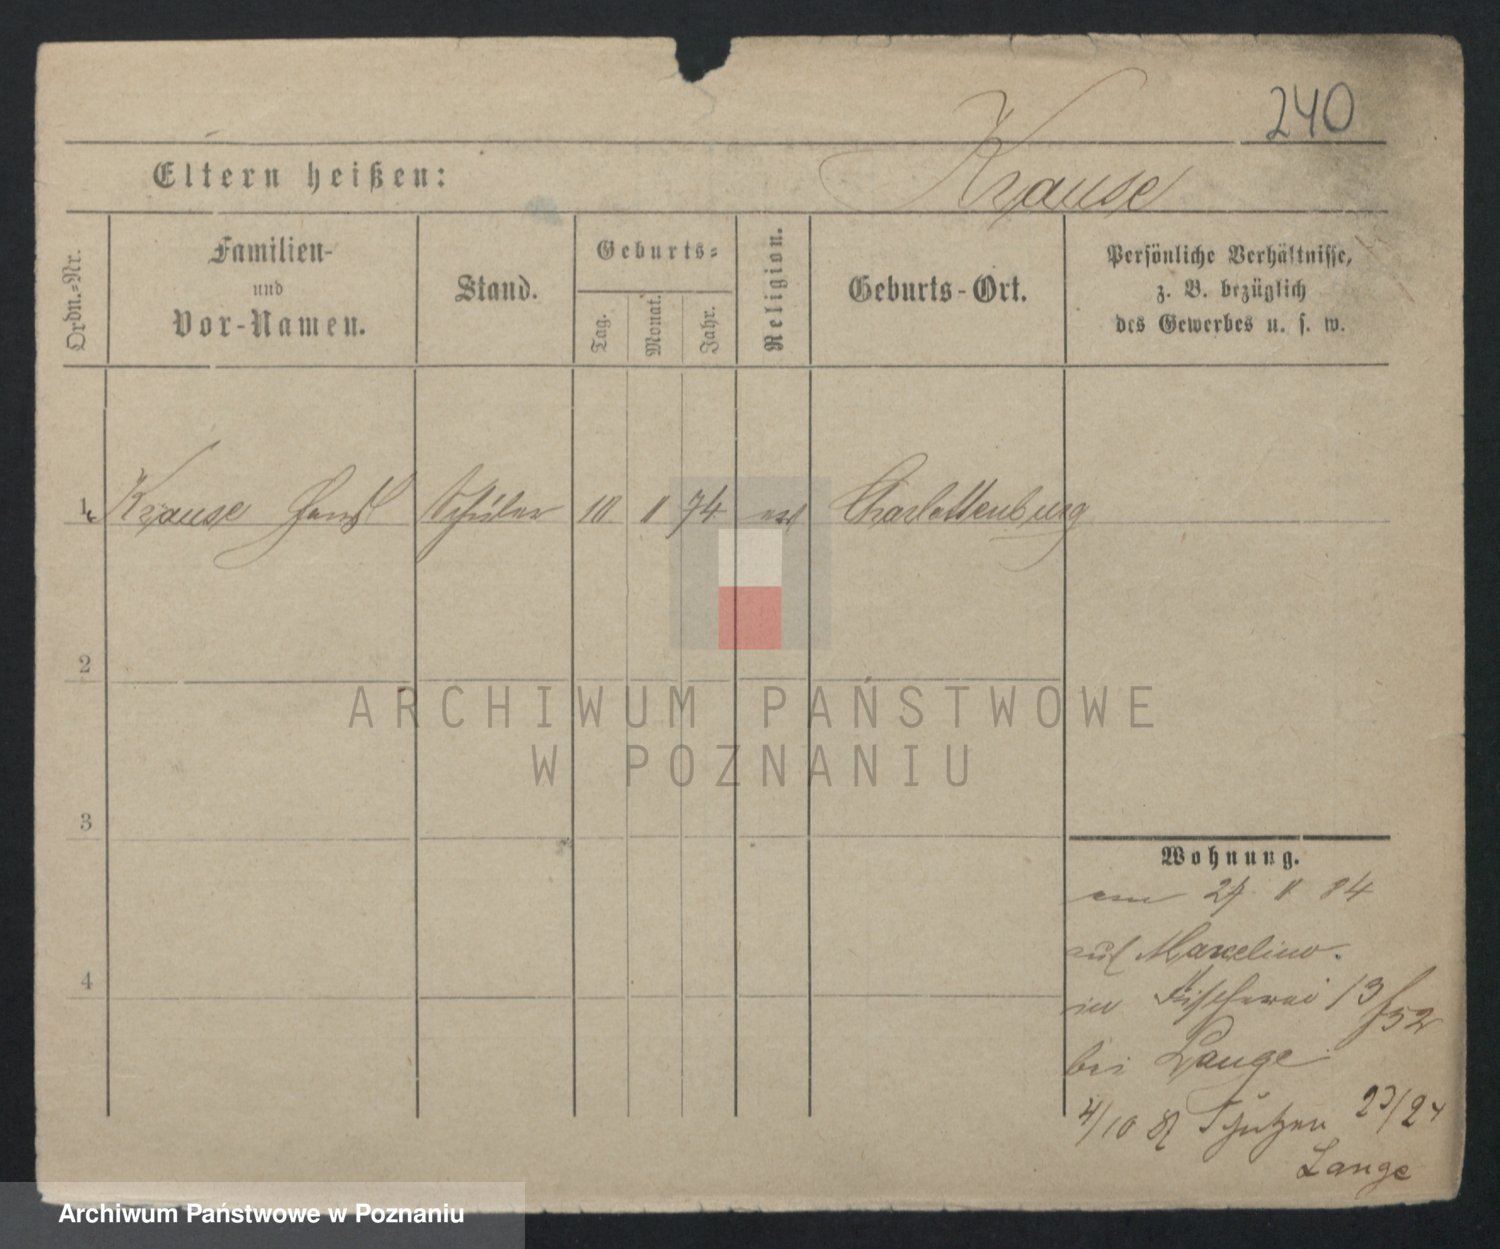 240
Eltern heißen: Krause
Ordn.-Nr.
Familien-
und
Vor-Namen.
Stand.
Geburts-
Tag.
Monat.
Jahr.
Religion.
Geburts-Ort.
Persönliche Verhältnisse,
z. B. bezüglich
des Gewerbes u. s. w.
1 Krause Schüler 74 Charlottenburg
2
3
4
Wohnung.
84
auf
in Fischerei 13/
bei Lange
4/10 23/24
Lange
ARCHIWUM PAŃSTWOWE
W POZNANIU
Archiwum Państwowe w Poznaniu